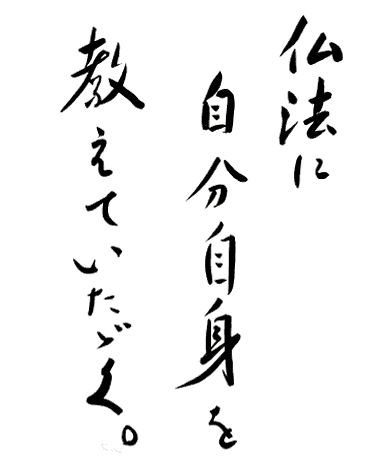 仏法に
自分自身を
教えていたゞく。